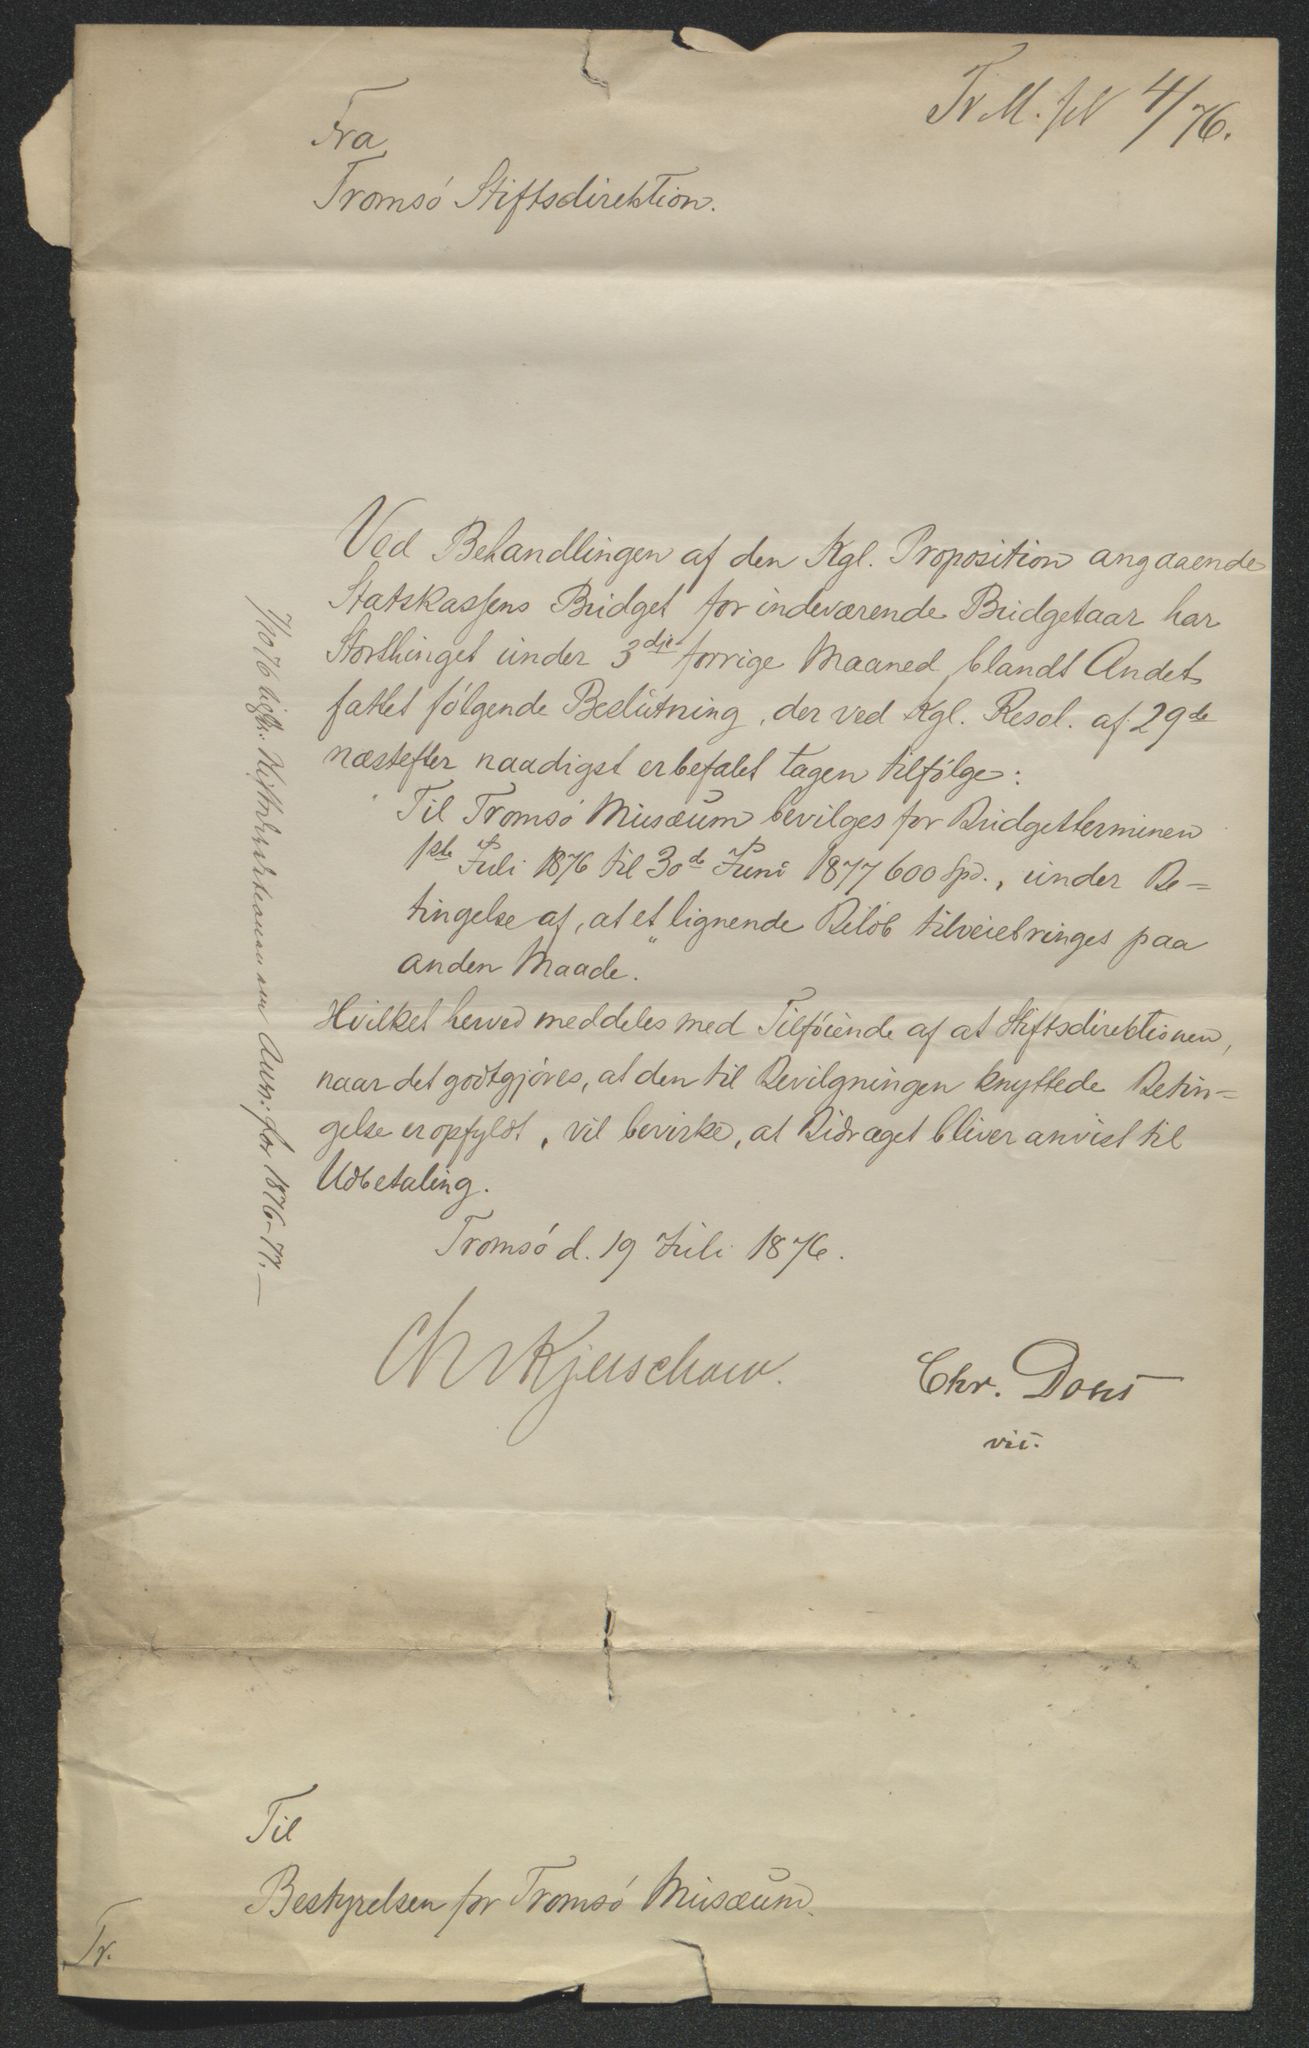 Tr M. jN 4/76.
Fra
Tromsö Stiftsdirektion.
Ved Behandlingen af den Kgl. Proposition angaaende
Statskassens Budget for indeværende Budgetaar har
Storthinget under 3dje forrige Maaned, blandt Andet
fattet fölgende Beslutning, der ved Kgl. Resol. af 29de
næstefter naadigst er befalet tagen tilfölge:
"Til Tromsö Musæum bevilges for Budgetterminen
1ste Juli 1876 til 30de Juni 1877 600 Spd., under Be=
tingelse af, at et lignende Belöb tilveiebringes paa
anden Maade."
Hvilket herved meddeles med Tilföiende af at Stiftsdirektionen,
naar det godtgjöres, at den til Bevilgningen knyttede Betin=
gelse er opfyldt, vil bevirke, at Bidraget bliver anvist til
Udbetaling.
Tromsö d. 19 Juli 1876.
Chr Kjerschow.
Chr. Dons
vic.
7/10 76 Stiftsdirektionen om Anv: for 1876-77.—
Til
Bestyrelsen for Tromsö Musæum.
Tr.